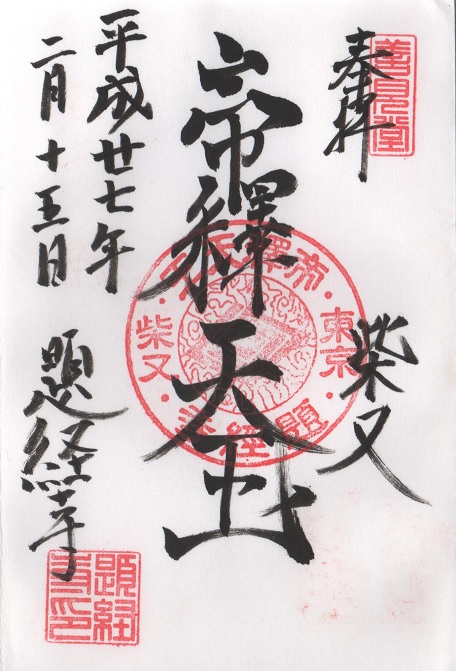 奉拝
善見堂
柴又
帝釋天
東京
帝釋天
柴又
題經寺
平成廿七年
二月十五日
題経寺
題経寺印